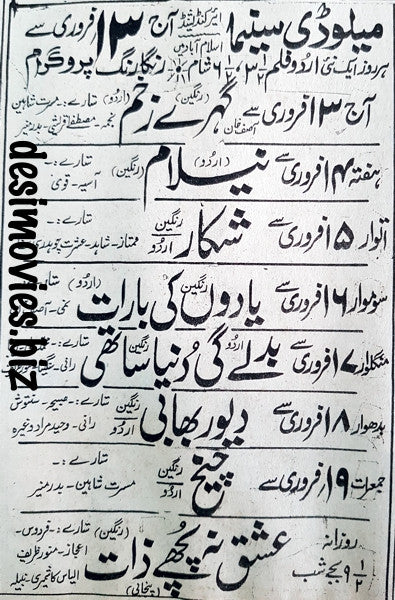 میلوڈی سینما ایرکنڈیشنڈ اسلام آباد میں آج ۱۳ فروری سے
ہر روز ایک نئی اردو فلم ۳½، ۶½ شام، رنگارنگ پروگرام
آج ۱۳ فروری سے آصف خان گہرے زخم (رنگین) (اردو) ستارے:- مسرت شاہین
نجمہ - مصطفٰے قریشی - بدر منیر
ہفتہ ۱۴ فروری سے نیلام (اردو) (رنگین) ستارے:-
آسیہ - قوی
اتوار ۱۵ فروری سے شکار رنگین اردو ستارے:-
ممتاز - شاہد - عشرت چوہدری
سوموار ۱۶ فروری سے یادوں کی بارات رنگین (اردو)
منگلوار ۱۷ فروری سے بدلے گی دنیا ساتھی اردو رنگین ستارے:-
بدھوار ۱۸ فروری سے دیور بھابی رنگین اردو ستارے:- صبیحہ - سنتوش
رانی - وحید مراد وغیرہ
جمعرات ۱۹ فروری سے چیخ رنگین اردو ستارے:-
مسرت شاہین - بدر منیر
روزانہ ۹½ بجے شب عشق نہ پچھے ذات (رنگین) (پنجابی) ستارے:- فردوس -
اعجاز - منور ظریف
الیاس کاشمیری - نبیلہ
desimovies.bz